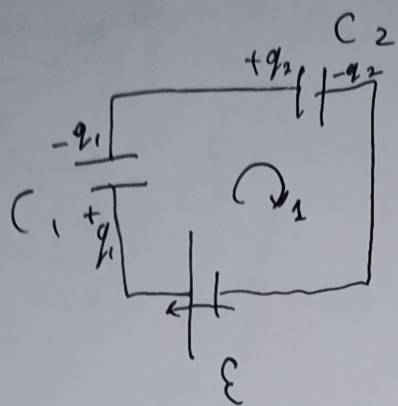 C 2
+q₂
-q₂
-q₁
C₁
+q₁
1
ε